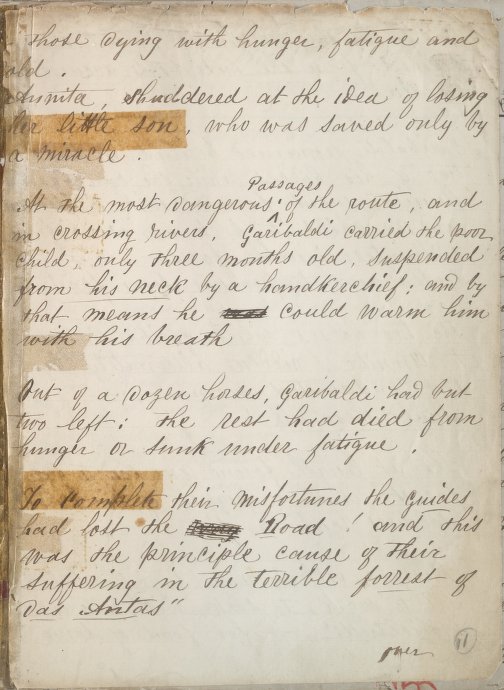 those dying with hunger, fatigue and
old.
Annita, shuddered at the idea of losing
her little son, who was saved only by
a miracle.
Passages
At the most dangerous of the route, and
in crossing rivers, Garibaldi carried the poor
child, only three months old, suspended
from his neck by a handkerchief: and by
that means he could warm him
with his breath
Out of a dozen horses, Garibaldi had but
two left; the rest had died from
hunger or sunk under fatigue.
To complete their misfortunes the guides
had lost the Road! and this
was the principle cause of their
suffering in the terrible forrest of
das Antas"
over
11